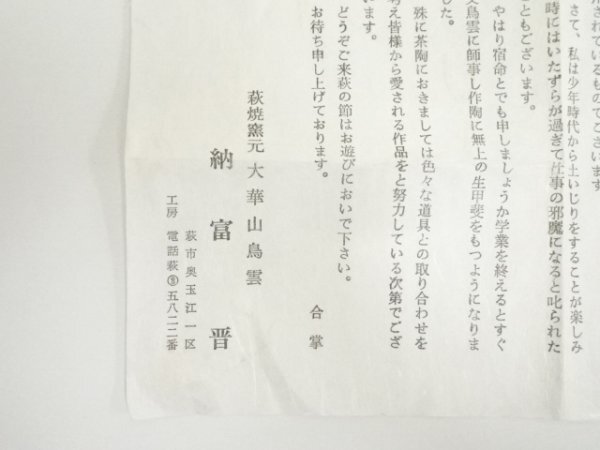 用されているものでございます
さて、私は少年時代から土いじりをすることが楽しみ
時にはいたずらが過ぎて仕事の邪魔になると叱られた
こともございます。
やはり宿命とでも申しましょうか学業を終えるとすぐ
父鳥雲に師事し作陶に無上の生甲斐をもつようになりま
した。
殊に茶陶におきましては色々な道具との取り合わせを
考え皆様から愛される作品をと努力している次第でござ
います。
どうぞご来萩の節はお遊びにおいで下さい。
お待ち申し上げております。
合掌
萩焼窯元 大華山鳥雲
納富晋
萩市奥玉江一区
工房 電話萩②五八二二番